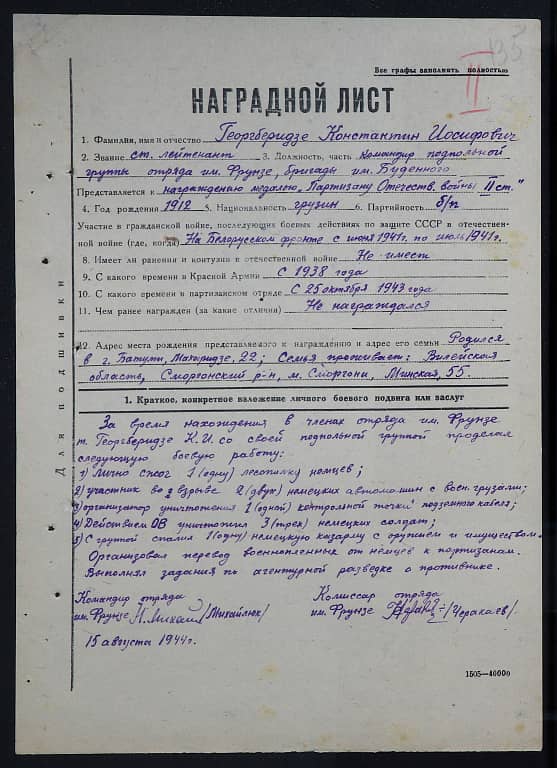 135
II
Все графы заполнять полностью
НАГРАДНОЙ ЛИСТ
1. Фамилия, имя и отчество Георгберидзе Константин Иосифович
2. Звание ст. лейтенант 3. Должность, часть командир подпольной
группы отряда им. Фрунзе, бригады им. Буденного
Представляется к награждению медалью „Партизану Отечеств. войны II ст."
4. Год рождения 1912 5. Национальность грузин 6. Партийность б/п
Участие в гражданской войне, последующих боевых действиях по защите СССР в отечествен-
ной войне (где, когда) На Белорусском фронте с июня 1941г. по июль 1941г.
8. Имеет ли ранения и контузии в отечественной войне Не имеет
9. С какого времени в Красной Армии С 1938 года
10. С какого времени в партизанском отряде С 25 октября 1943 года
11. Чем ранее награжден (за какие отличия) Не награждался
12. Адрес места рождения представляемого к награждению и адрес его семьи Родился
в г. Батуми, Махаридзе, 22; Семья проживает: Вилейская
область, Сморгонский р-н, м. Сморгони, Минская, 55.
1. Краткое, конкретное изложение личного боевого подвига или заслуг
За время нахождения в членах отряда им. Фрунзе
т. Георгберидзе К.И. со своей подпольной группой проделал
следующую боевую работу:
1) Лично сжег 1 (одну) лесопилку немцев;
2) участник во взрыве 2 (двух) немецких автомашин с воен. грузами;
3) организатор уничтожения 1 (одной) контрольной точки подземного кабеля;
4) Действием ОВ уничтожил 3 (трех) немецких солдат;
5) С группой спалил 1 (одну) немецкую казарму с оружием и имуществом.
Организовал перевод военнопленных от немцев к партизанам.
Выполнял задания по агентурной разведке о противнике.
Командир отряда Комиссар отряда
им. Фрунзе /Михайлюк/ им. Фрунзе /Черкаев/
15 августа 1944г.
1505—40000
Для подшивки